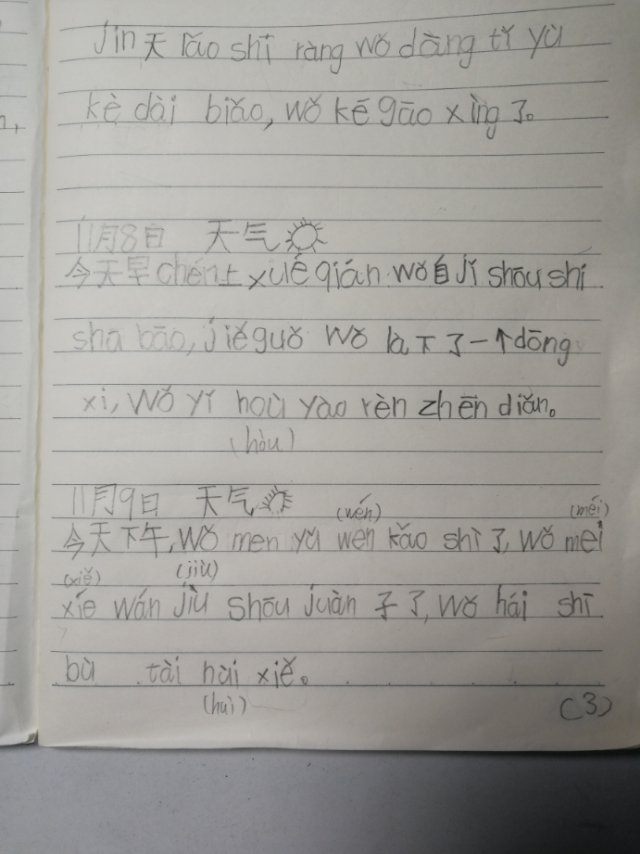 jīn天 lǎo shī ràng wǒ dāng tǐ yù
kè dài biǎo, wǒ kě gāo xìng了。
11月8日 天气
今天早chén上xué qián wǒ自jǐ shōu shí
shū bāo, jiéguǒ wǒ là下了一个dōng
xi, wǒ yǐ hoù yào rèn zhēn diǎn。
(hòu)
11月9日 天气
(wén) (méi)
今天下午, wǒ men yǔ wen kǎo shì了, wǒ mei
(xiě) (jiù)
xíe wán jìu shōu juàn子了, wǒ hái shī
bù tài hài xiě。
(huì)
(3)